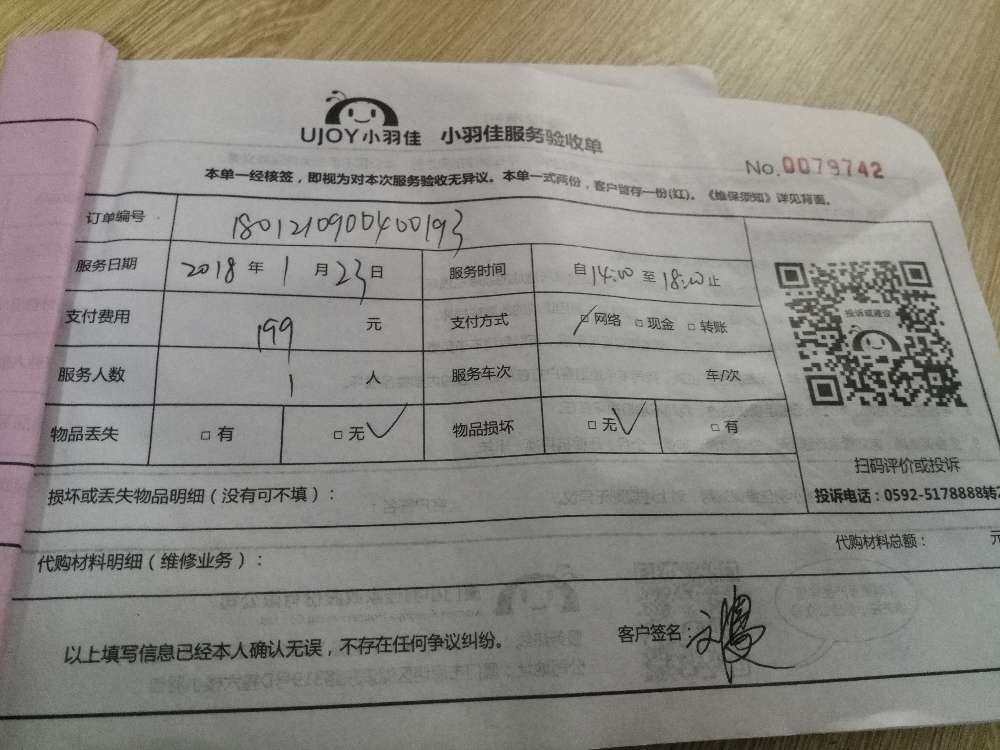 UJOY小羽佳 小羽佳服务验收单
No.0079742
本单一经核签，即视为对本次服务验收无异议。本单一式两份，客户留存一份(红)。《维保须知》详见背面。
订单编号 180121090040 0193
服务日期 2018 年 1 月 23 日 服务时间 自 14:00 至 18:00 止
支付费用 199 元 支付方式 □ 网络 □ 现金 □ 转账
服务人数 1 人 服务车次 车/次
物品丢失 □ 有 □ 无 ✓ 物品损坏 □ 无 ✓ □ 有
投诉或建议
扫码评价或投诉
投诉电话：0592-5178888转
损坏或丢失物品明细（没有可不填）：
代购材料明细（维修业务）： 代购材料总额： 元
以上填写信息已经本人确认无误，不存在任何争议纠纷。 客户签名：